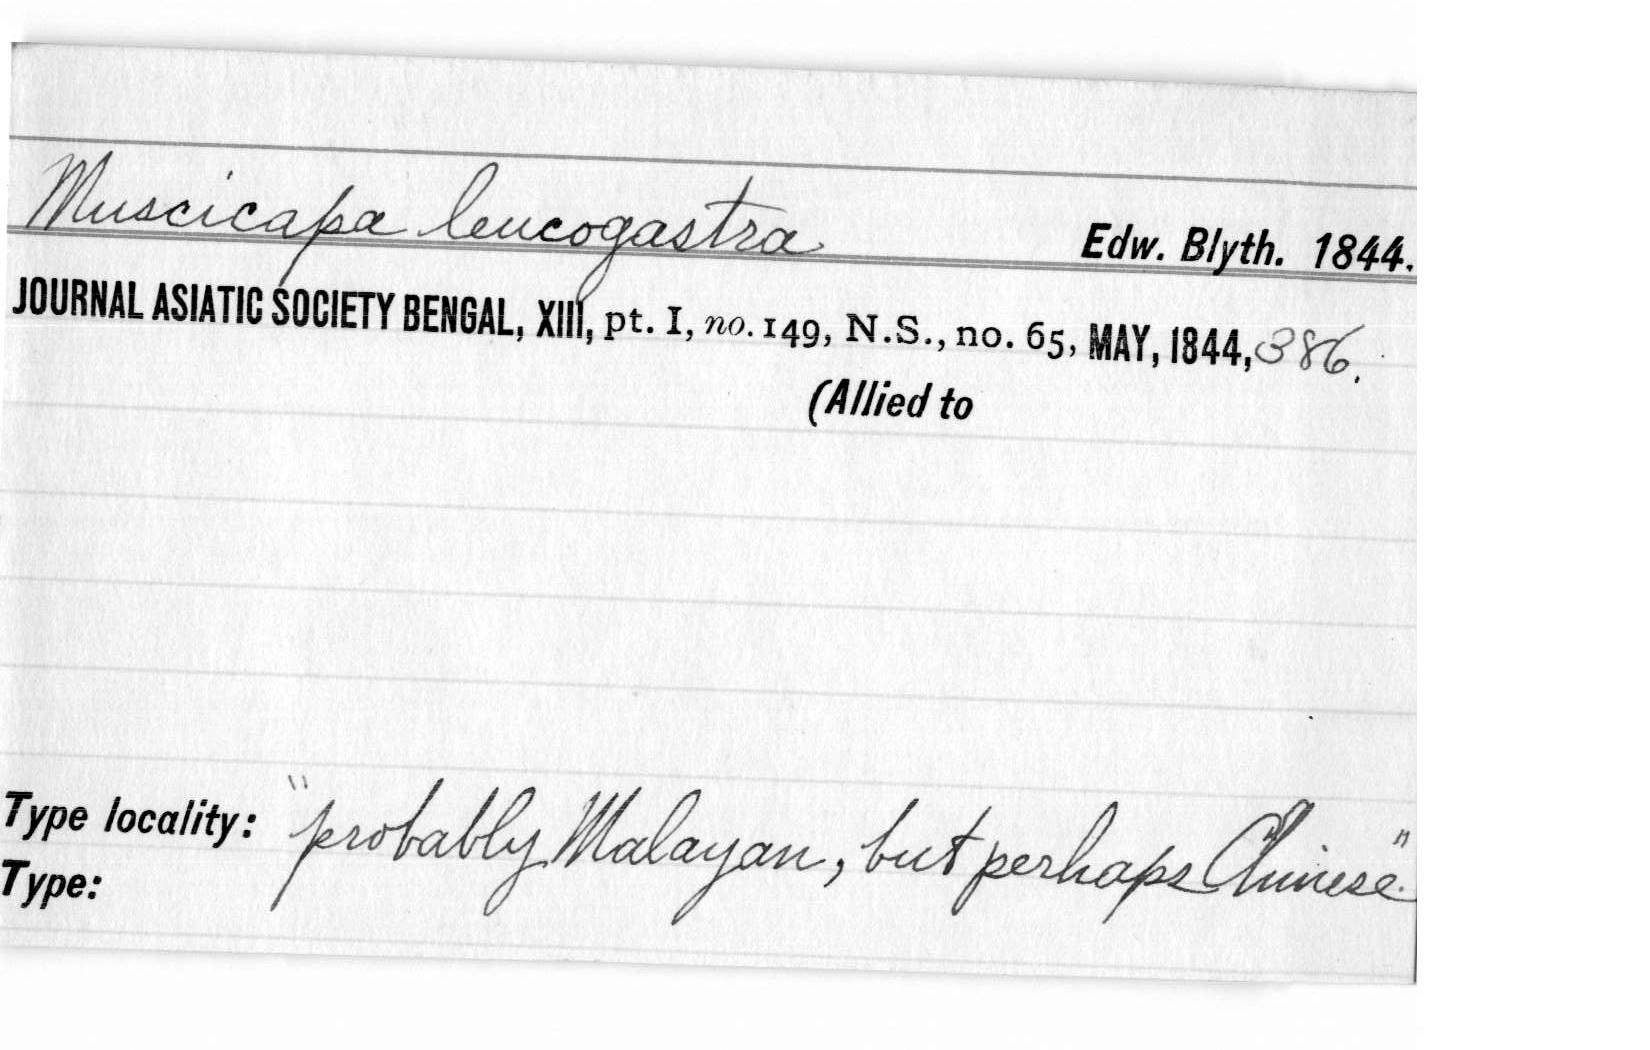 Muscicapa leucogastra Edw. Blyth. 1844.
JOURNAL ASIATIC SOCIETY BENGAL, XIII, pt. I, no. 149, N.S., no. 65, MAY, 1844, 386.
(Allied to
Type locality: "probably Malayan, but perhaps Chinese."
Type: